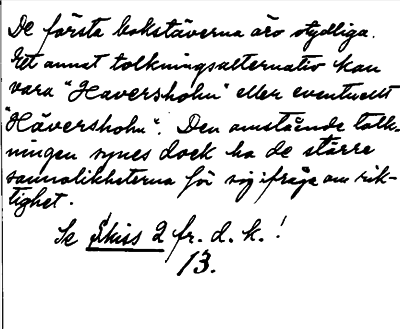 De första bokstäverna äro otydliga.
Ett annat tolkningsalternativ kan
vara "Havershohn" eller eventuellt
"Hävershohn". Den omstående tolk-
ningen synes dock ha de större
sannolikheterna för sig ifråga om rik-
tighet.
Se Skiss 2 fr. d. k.!
13.